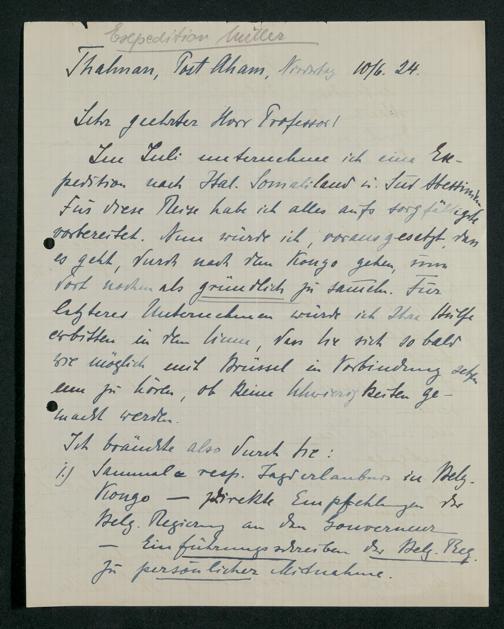 Expedition Müller
Thalman, Post Aham, 10/6. 24.
Sehr geehrter Herr Professor!
Im Juli unternehme ich eine Ex-
pedition nach Ital. Somaliland u. Süd Abessinien
Für diese Reise habe ich alles aufs sorgfältigste
vorbereitet. Nun würde ich, vorausgesetzt, dass
es geht, durch nach dem Kongo gehen, um
dort nochmals gründlich zu sammeln. Für
letzteres Unternehmen würde ich Ihre Hülfe
erbitten in dem Sinne, dass Sie sich so bald
wie möglich mit Brüssel in Verbindung setzen
um zu hören, ob keine Schwierigkeiten ge-
macht werden.
Ich brauchte also durch Sie:
1.) Sammel resp. Jagderlaubnis in Belg.
Kongo — direkte Empfehlungen der
Belg. Regierung an den Gouverneur
— Einführungsschreiben der Belg. Reg.
zu persönlicher Mitnahme.